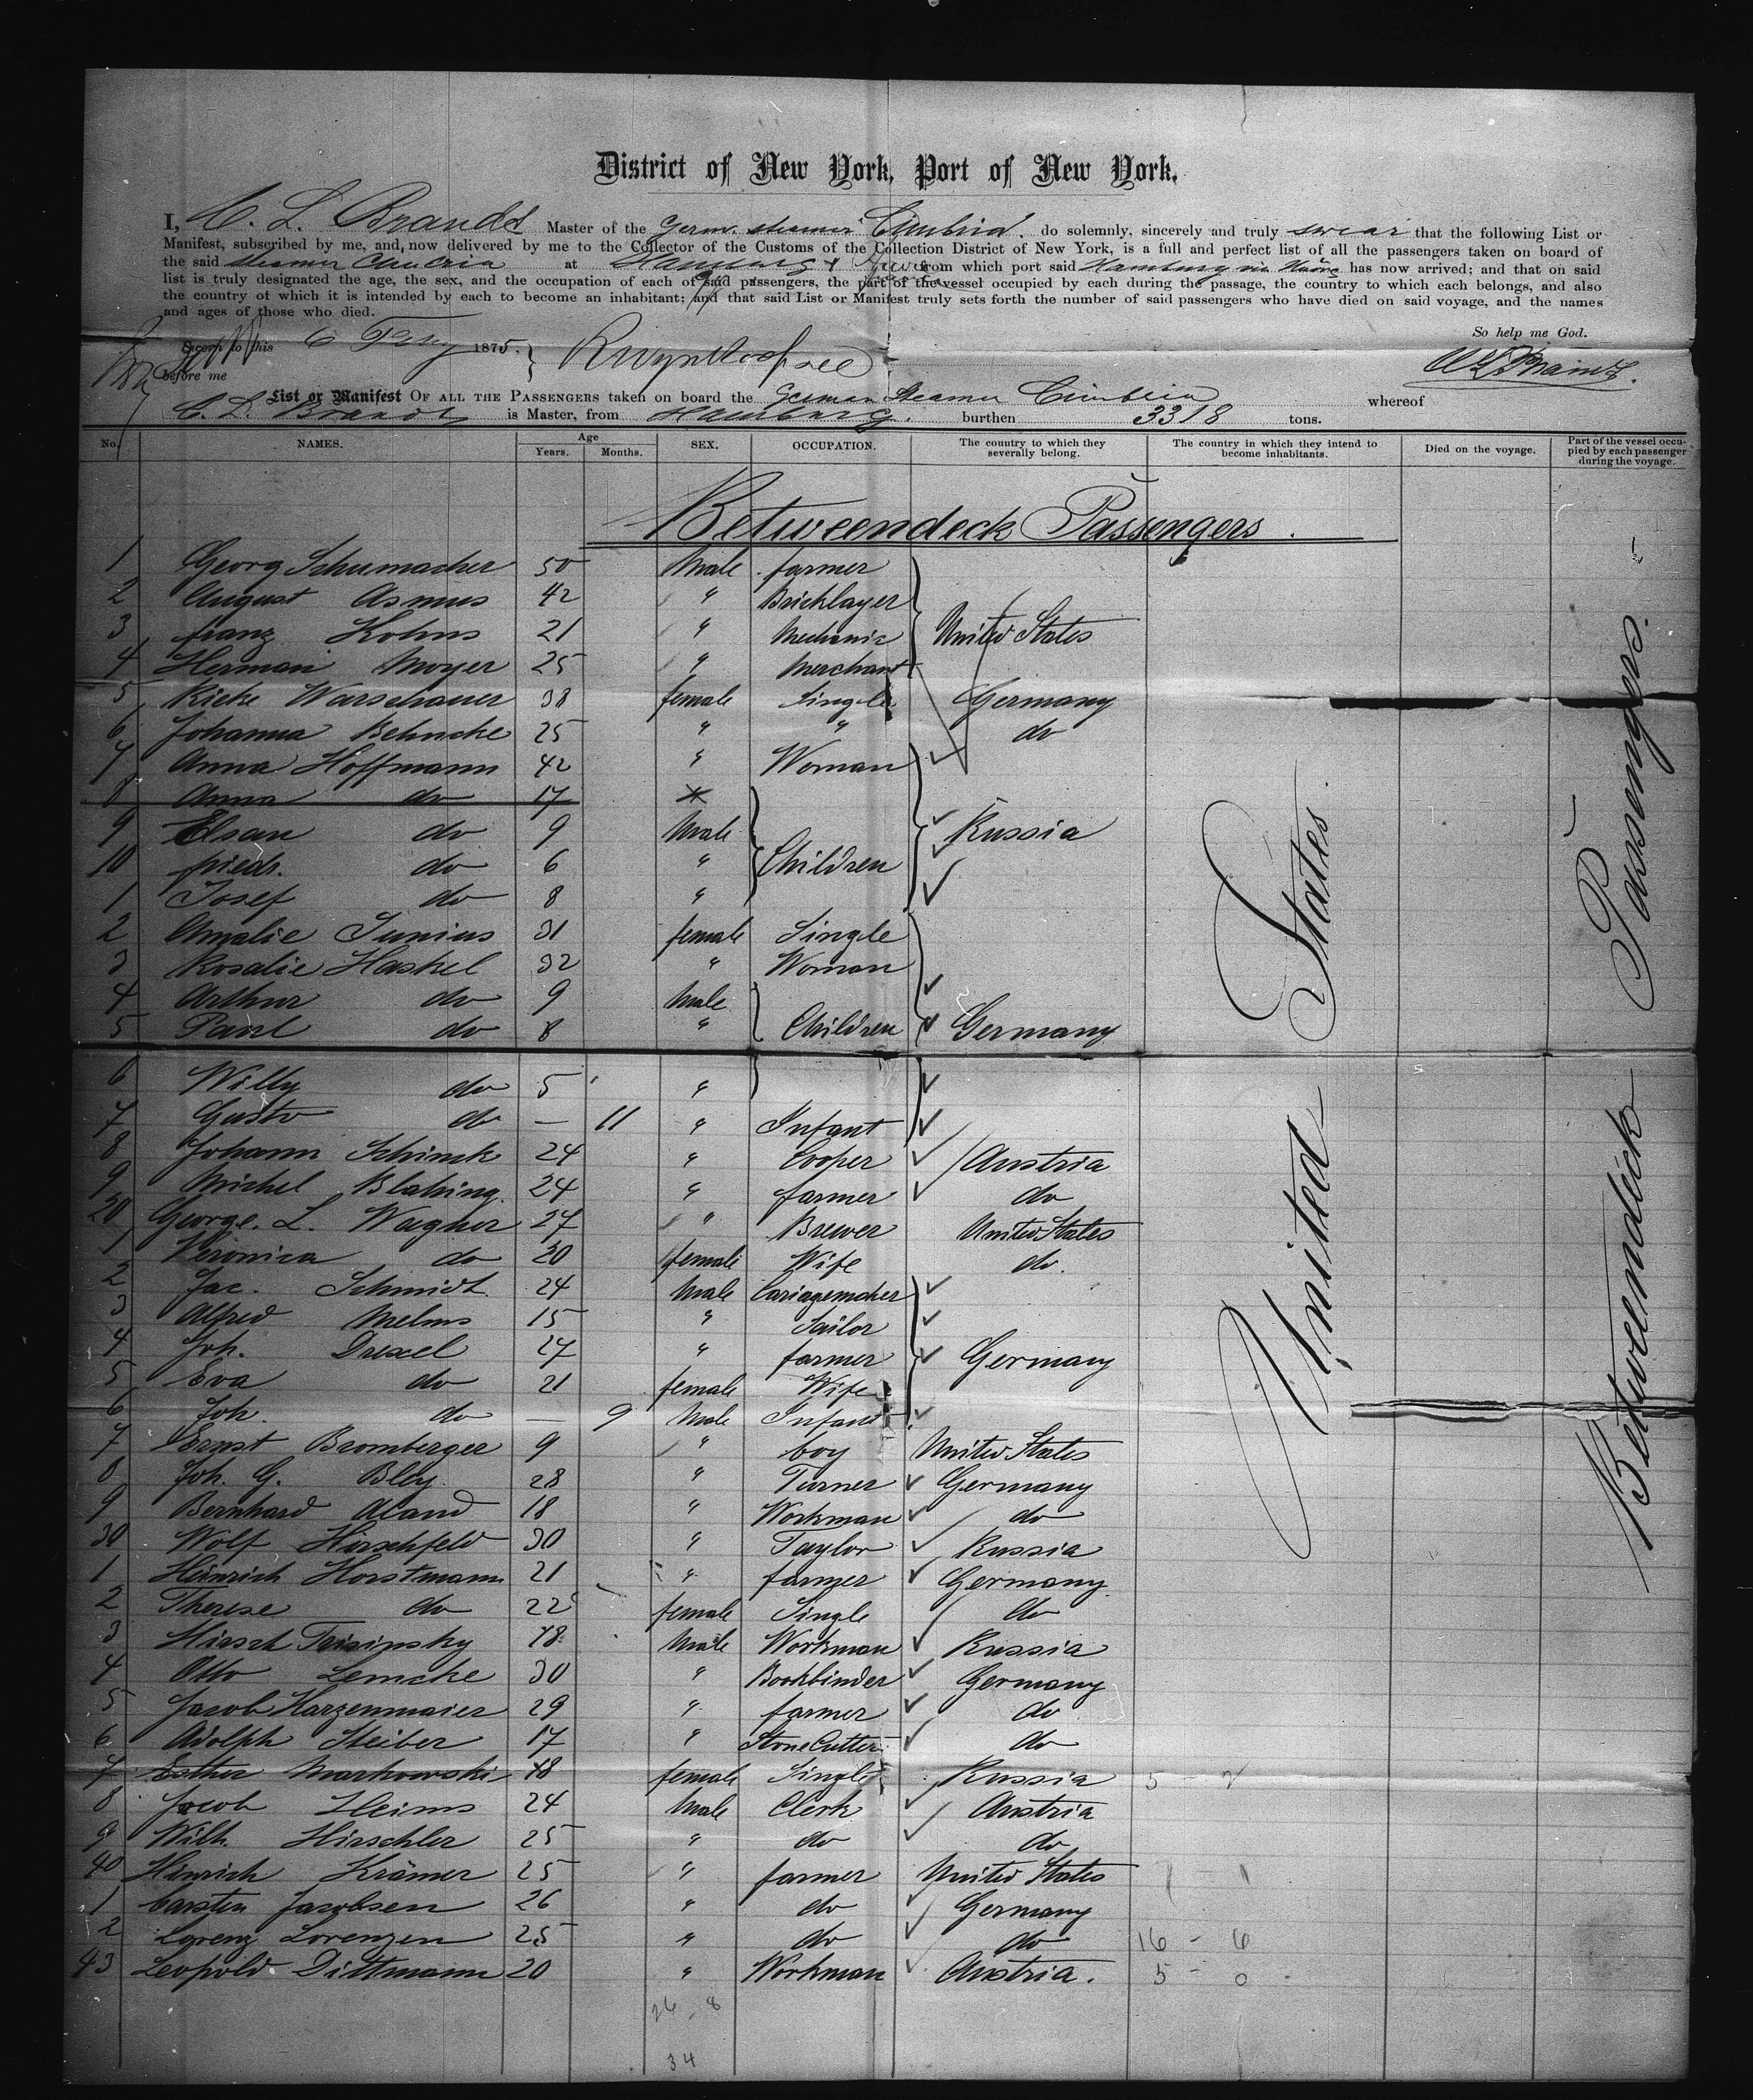 District of New York, Port of New York.
I, C. L. Brandt Master of the Germ. steamer Cimbria. do solemnly, sincerely and truly swear that the following List or
Manifest, subscribed by me, and now delivered by me to the Collector of the Customs of the Collection District of New York, is a full and perfect list of all the passengers taken on board of
the said steamer Cimbria at Hamburg & Havre from which port said Hamburg via Havre has now arrived; and that on said
list is truly designated the age, the sex, and the occupation of each of said passengers, the part of the vessel occupied by each during the passage, the country to which each belongs, and also
the country of which it is intended by each to become an inhabitant; and that said List or Manifest truly sets forth the number of said passengers who have died on said voyage, and the names
and ages of those who died.
So help me God.
Sworn to this 6 Feby 1875.
before me
List or Manifest OF ALL THE PASSENGERS taken on board the German Steamer Cimbria whereof
C. L. Brandt is Master, from Hamburg. burthen 3318 tons.
No. NAMES. Age Years. Months. SEX. OCCUPATION. The country to which they severally belong. The country in which they intend to become inhabitants. Died on the voyage. Part of the vessel occupied by each passenger during the voyage.
Betweendeck Passengers.
1 Georg Schumacher 50 Male farmer
2 August Asmus 42 " Bricklayer
3 franz Kohns 21 " Mechanic United States
4 Herman Moyer 25 " Merchant
5 Rieke Warschauer 38 female Single Germany
6 Johanna Behncke 25 " " do
7 Anna Hoffmann 42 " Woman
8 Anna do 17
9 Elsan do 9 Male Russia
10 friedr. do 6 " Children
1 Josef do 8 "
2 Amalie Junius 31 female Single
3 Rosalie Haskel 32 " Woman
4 Arthur do 9 Male
5 Paul do 8 " Children Germany
6 Willy do 5 "
7 Gustv do — 11 " Infant
8 Johann Schinck 24 " Cooper Austria
9 Michel Blahing. 24 " farmer do
20 George. L. Wagner 27 " Brewer United States
1 Veronica do 20 female Wife do.
2 Jac. Schmidt 24 Male Cariagemaker
3 Alfred Melms 15 " Sailor
4 Joh. Drexel 27 " farmer Germany
5 Eva do 21 female Wife
6 Joh. do — 9 Male Infant
7 Ernst Bromberger 9 " boy United States
8 Joh. G. Bley 28 " Turner Germany
9 Bernhard Aland 18 " Workman do
30 Wolf Hirschfeld 30 " Taylor Russia
1 Heinrich Horstmann 21 " farmer Germany
2 Therese do 22 female Single do
3 Hirsch Trisinsky 18 Male Workman Russia
4 Otto Lemcke 30 " Bookbinder Germany
5 Jacob Harzenmaier 29 " farmer do
6 Adolph Steiber 17 " Stone Cutter do
7 Esther Markowski 18 female Single Russia
8 Jacob Heims 24 Male Clerk Austria
9 Wilh. Hirschler 25 " do do
40 Henrich Krämer 25 " farmer United States
1 Carsten Jacobsen 26 " do Germany
2 Lorenz Lorenzen 25 " do do 16 - 6
43 Leopold Dittmann 20 " Workman Austria. 5 - 0
26 - 8
34
United States
Betweendeck Passengers.